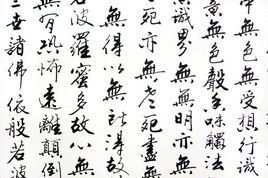 中無色無受想行識
意無色聲香味觸法
意識界無無明亦無
老死亦無老死盡無
無得以無所得故
波羅蜜多故心無
無有恐怖遠離顛倒
三世諸佛依般若波